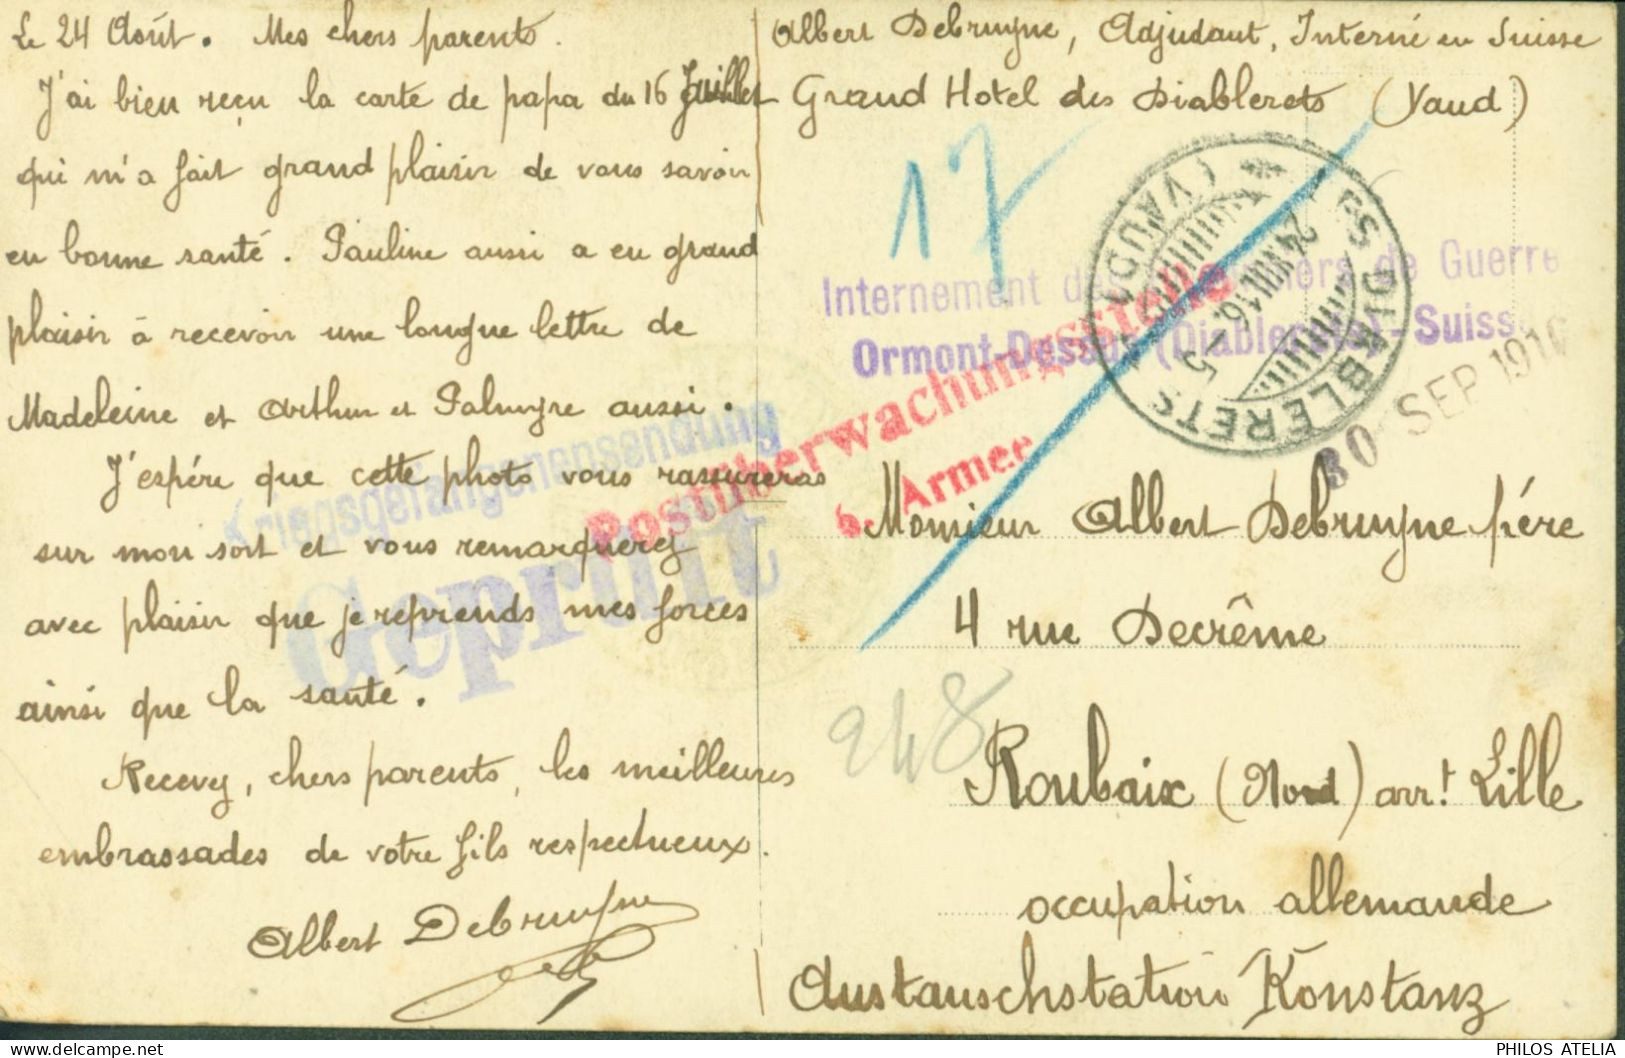 Le 24 Août. Mes chers parents.
J'ai bien reçu la carte de papa du 16 Juillet
qui m'a fait grand plaisir de vous savoir
en bonne santé. Pauline aussi a eu grand
plaisir à recevoir une longue lettre de
Madeleine et Arthur et Palmyre aussi.
J'espère que cette photo vous rassureras
sur mon sort et vous remarquerez
avec plaisir que je reprends mes forces
ainsi que la santé.
Recevez, chers parents, les meilleures
embrassades de votre fils respectueux.
Albert Debruyne
Albert Debruyne, Adjudant, Interné en Suisse
Grand Hotel des Diablerets (Vaud)
17
Internement des Prisonniers de Guerre
Ormont-Dessus (Diablerets) - Suisse
LES DIABLERETS (VAUD)
24.VIII.16.-5
30 SEP 1916
Kriegsgefangenensendung
Geprüft
Postüberwachungsstelle
6. Armee
Monsieur Albert Debruyne père
4 rue Decrême
248
Roubaix (Nord) arr.t Lille
occupation allemande
Austauschstation Konstanz
PHILOS ATELIA